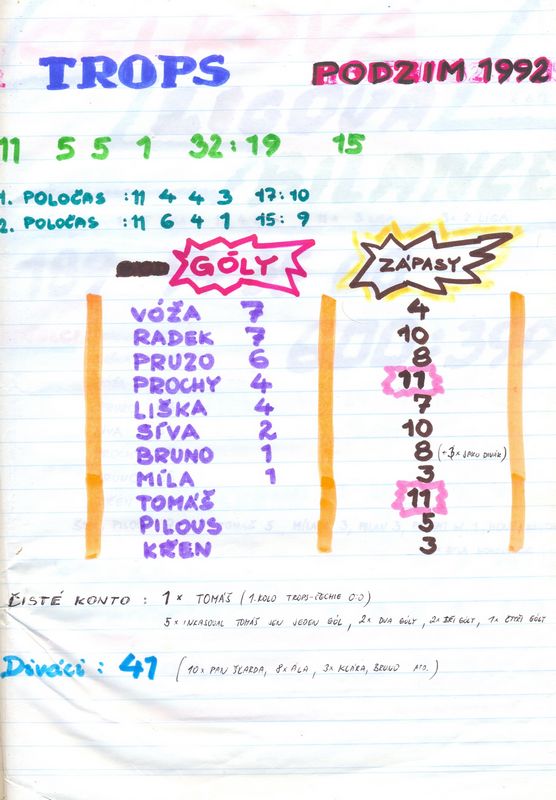 TROPS PODZIM 1992
11 5 5 1 32:19 15
1. POLOČAS :11 4 4 3 17:10
2. POLOČAS :11 6 4 1 15:9
GÓLY ZÁPASY
VÓŽA 7 4
RADEK 7 10
PRUZO 6 8
PROCHY 4 11
LIŠKA 4 7
SÍVA 2 10
BRUNO 1 8 (+3x JAKO DIVÁK)
MÍLA 1 3
TOMÁŠ 11
PILOUS 5
KŘEN 3
ČISTÉ KONTO : 1x TOMÁŠ (1.KOLO TROPS-ČECHIE 0:0)
5x INKASOVAL TOMÁŠ JEN JEDEN GÓL, 2x DVA GÓLY, 2x TŘI GÓLY, 1x ČTYŘI GÓLY
Diváci : 41 (10x PAN ŠLARDA, 8x ALA, 3x KLÁRA, BRUNO AJ.)